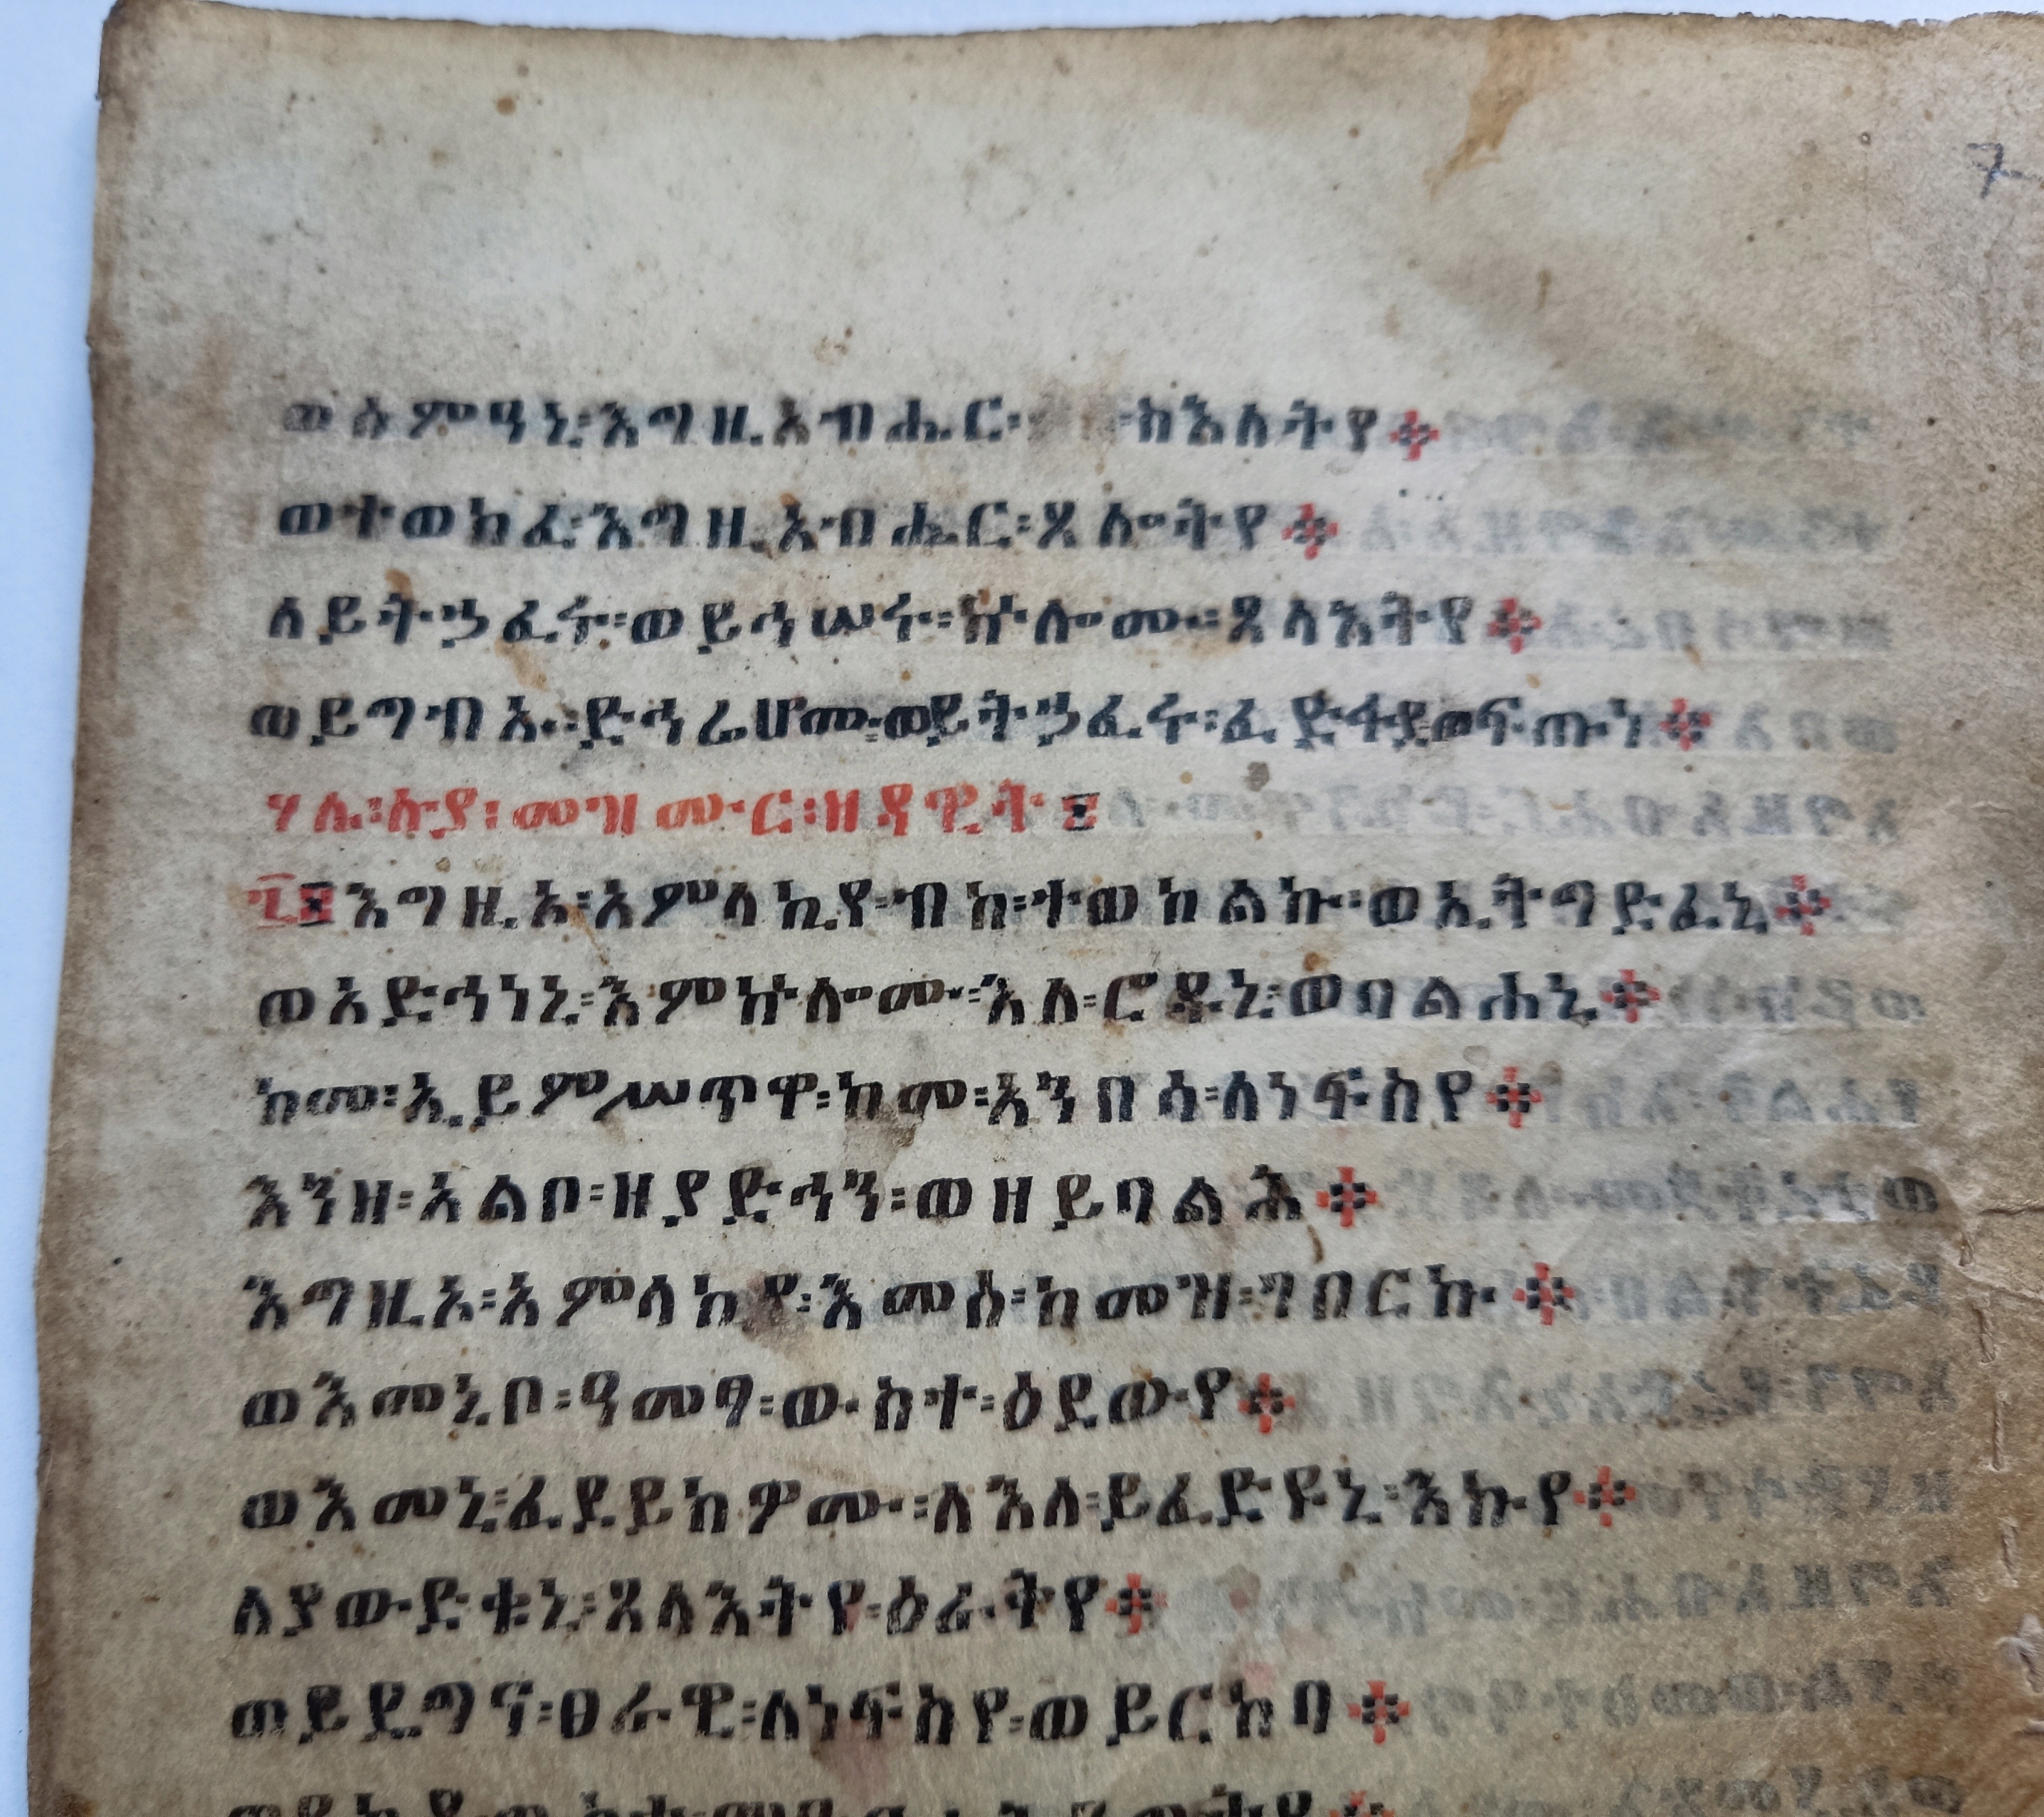 ወሰምዓኒ፡እግዚአብሔር፡ ስእለትየ፨
ወተወክፈ፡እግዚአብሔር፡ጸሎትየ፨
ለይትኃፈሩ፡ወይኅሡሩ፡ኵሎሙ፡ጸላእትየ፨
ወይግብኡ፡ድኅሬሆሙ፡ወይትኃፈሩ፡ፈድፋደ፡ወፍጡነ፨
ሃሌ፡ሉያ፡መዝሙር፡ዘዳዊት፡፯
፯እግዚኦ፡አምላኪየ፡ብከ፡ተወከልኩ፡ወኢትግድፈኒ፨
ወአድኅነኒ፡እምኵሎሙ፡እለ፡ሮዱኒ፡ወባልሐኒ፨
ከመ፡ኢይምሥጥዋ፡ከመ፡አንበሳ፡ለነፍስየ፨
እንዘ፡አልቦ፡ዘያድኅን፡ወዘይባልሕ፨
እግዚኦ፡አምላኪየ፡እመሰ፡ከመዝ፡ገበርኩ፨
ወእመኒቦ፡ዓመፃ፡ውስተ፡ዕደውየ፨
ወእመኒ፡ፈደይክዎሙ፡ለእለ፡ይፈድዩኒ፡እኩየ፨
ለያውድቁኒ፡ጸላእትየ፡ዕራቅየ፨
ወይዴግና፡ፀራዊ፡ለነፍስየ፡ወይርከባ፨